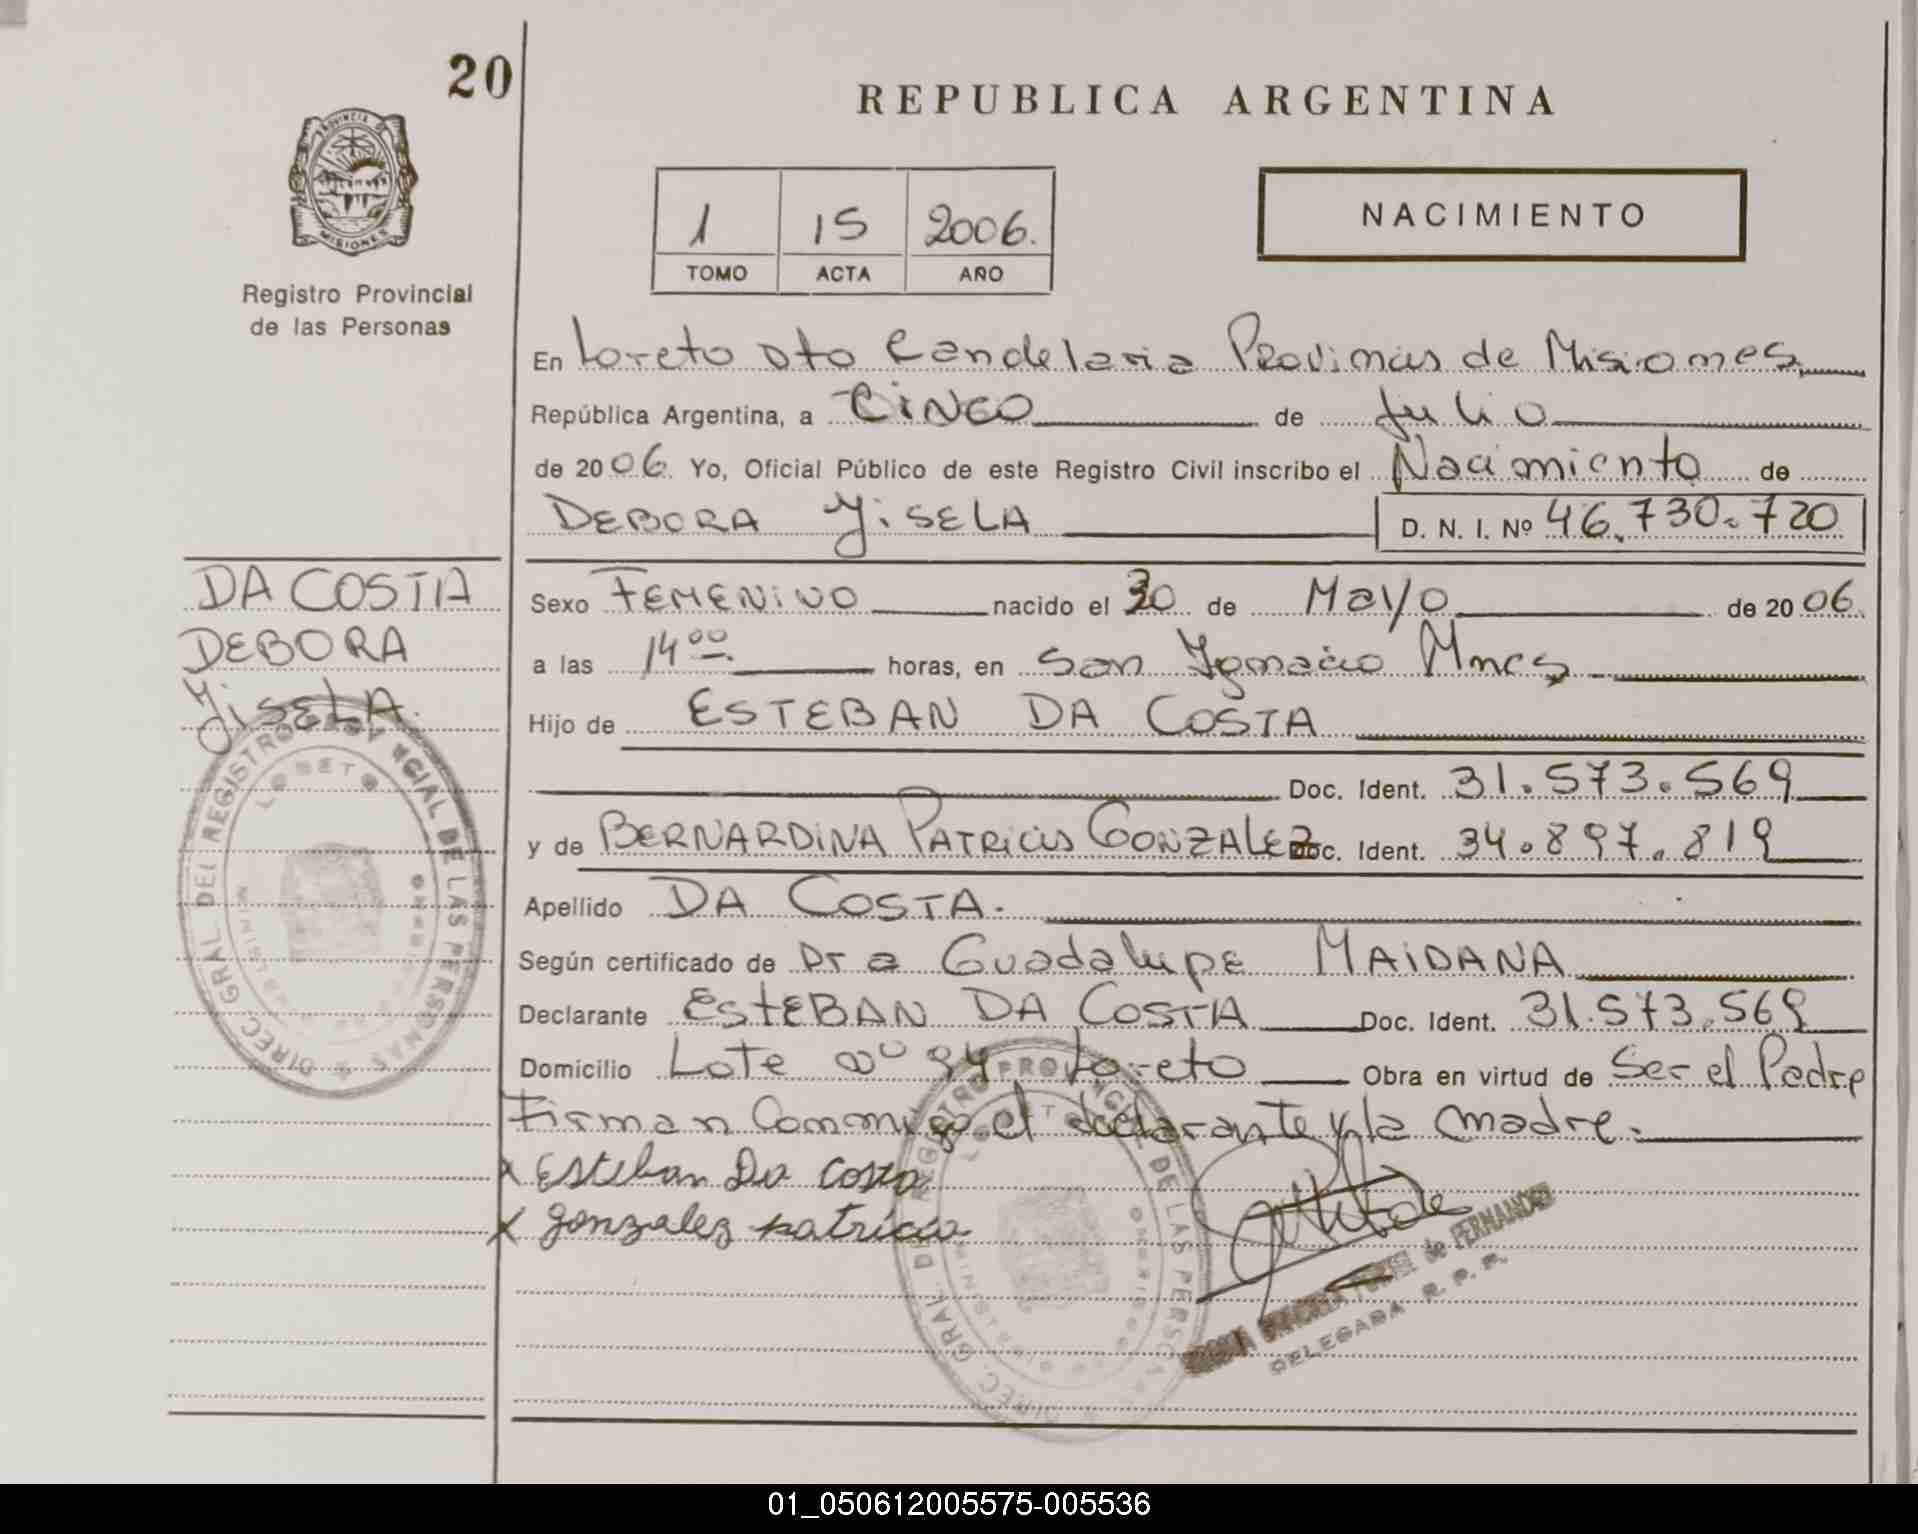 20
REPUBLICA ARGENTINA
PROVINCIA DE
MISIONES
Registro Provincial
de las Personas
1 15 2006.
TOMO ACTA AÑO
NACIMIENTO
En Loreto Dto Candelaria Provimcis de Misiones
República Argentina, a CINCO de Julio
de 2006. Yo, Oficial Público de este Registro Civil inscribo el Nacimiento de
DEBORA YISELA D. N. I. Nº 46.730.720
DA COSTA
DEBORA
YISELA.
Sexo FEMENINO nacido el 30 de Mayo de 2006.
a las 14 00 horas, en San Ygnacio Mnes
Hijo de ESTEBAN DA COSTA
Doc. Ident. 31.573.569
y de BERNARDINA PATRICIS GONZALEZ Doc. Ident. 34.897.819
Apellido DA COSTA.
Según certificado de Dra Guadalupe MAIDANA
Declarante ESTEBAN DA COSTA Doc. Ident. 31.573.569
Domicilio Lote nº 94 Loreto Obra en virtud de Ser el Padre
Firman Conmigo el declarante y la madre.
x Esteban Da Costa
x gonzalez patricia
DIREC. GRAL. DEL REGISTRO PROVINCIAL DE LAS PERSONAS
LORETO
MISIONES
DIREC. GRAL. DEL REGISTRO PROVINCIAL DE LAS PERSONAS
de FERNANDEZ
DELEGADA R. P. P.
01_050612005575-005536